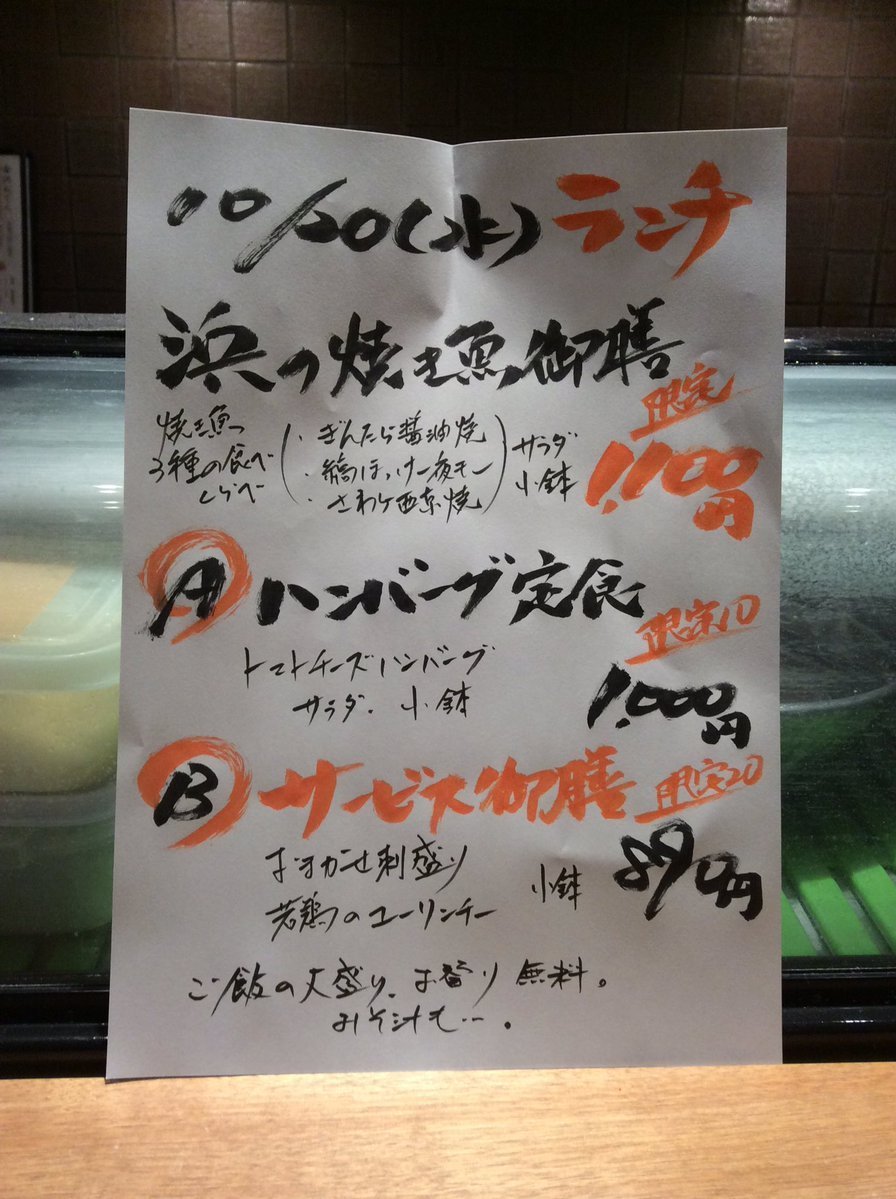 10/20(水)ランチ
浜の焼き魚御膳
限定
1,100円
焼き魚の
3種の食べ
くらべ
・ぎんだら醤油焼
・縞ほっけ一夜干し
・さわら西京焼
サラダ
小鉢
A ハンバーグ定食
限定10
トマトチーズハンバーグ
サラダ、小鉢
1,000円
B サービス御膳
限定20
おまかせ刺盛り
若鶏のユーリンチー
小鉢
890円
ご飯の大盛り、お替り無料。
みそ汁も…。